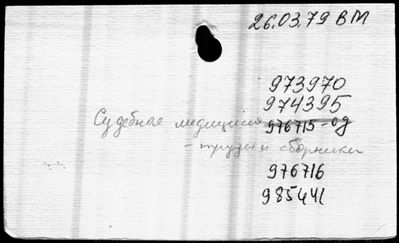 26.03.79 ВМ
973970
974395
Судебная медицина 976715-од
- труды и сборники
976716
985441